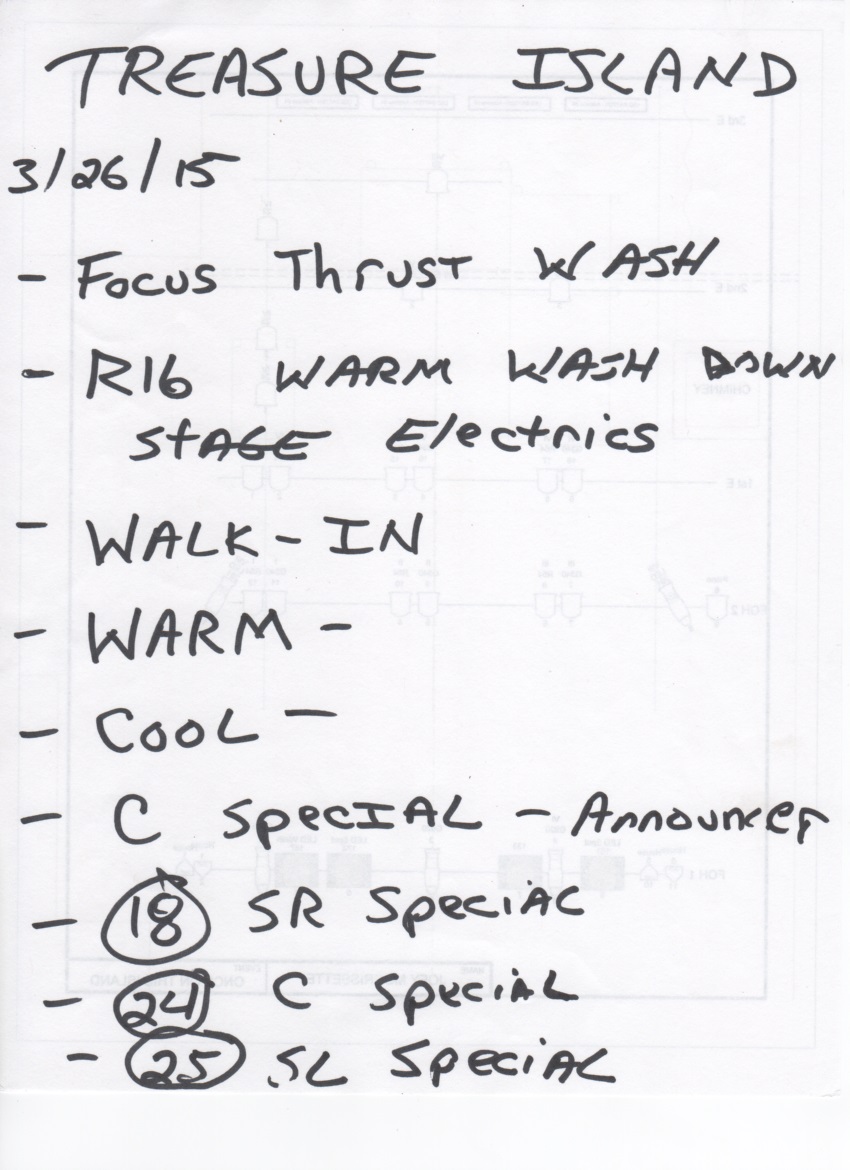 TREASURE ISLAND
3/26/15
- Focus Thrust WASH
- R16 WARM WASH DOWN
STAGE Electrics
- WALK-IN
- WARM -
- COOL -
- C SpecIAL - Announcer
- 18 SR SpeciAL
- 24 C SpeciAL
- 25 SL SpeciAL
3rd E
2nd E
CHIMNEY
1st E
FOH 2
FOH 1